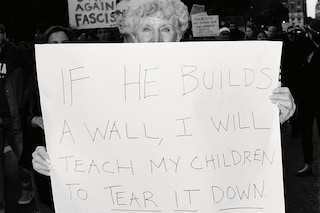 AGAINST
FASCIS
IF HE BUILDS
A WALL, I WILL
TEACH MY CHILDREN
TO TEAR IT DOWN.